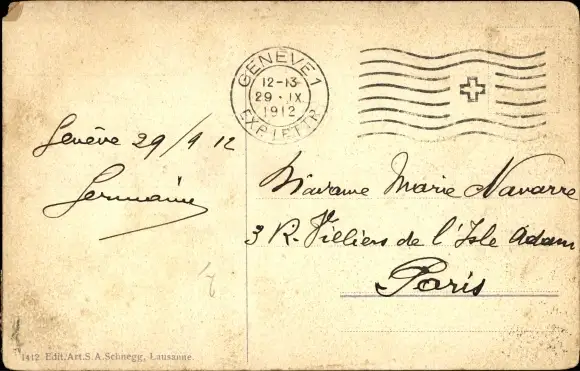 GENÈVE 1
12-13
29.IX.
1912
EXP. LETTR.
Genève 29/9 12
Germaine
Madame Marie Navarre
3 R. Villiers de l'Isle Adam
Paris
1412 Edit. Art. S.A. Schnegg, Lausanne.